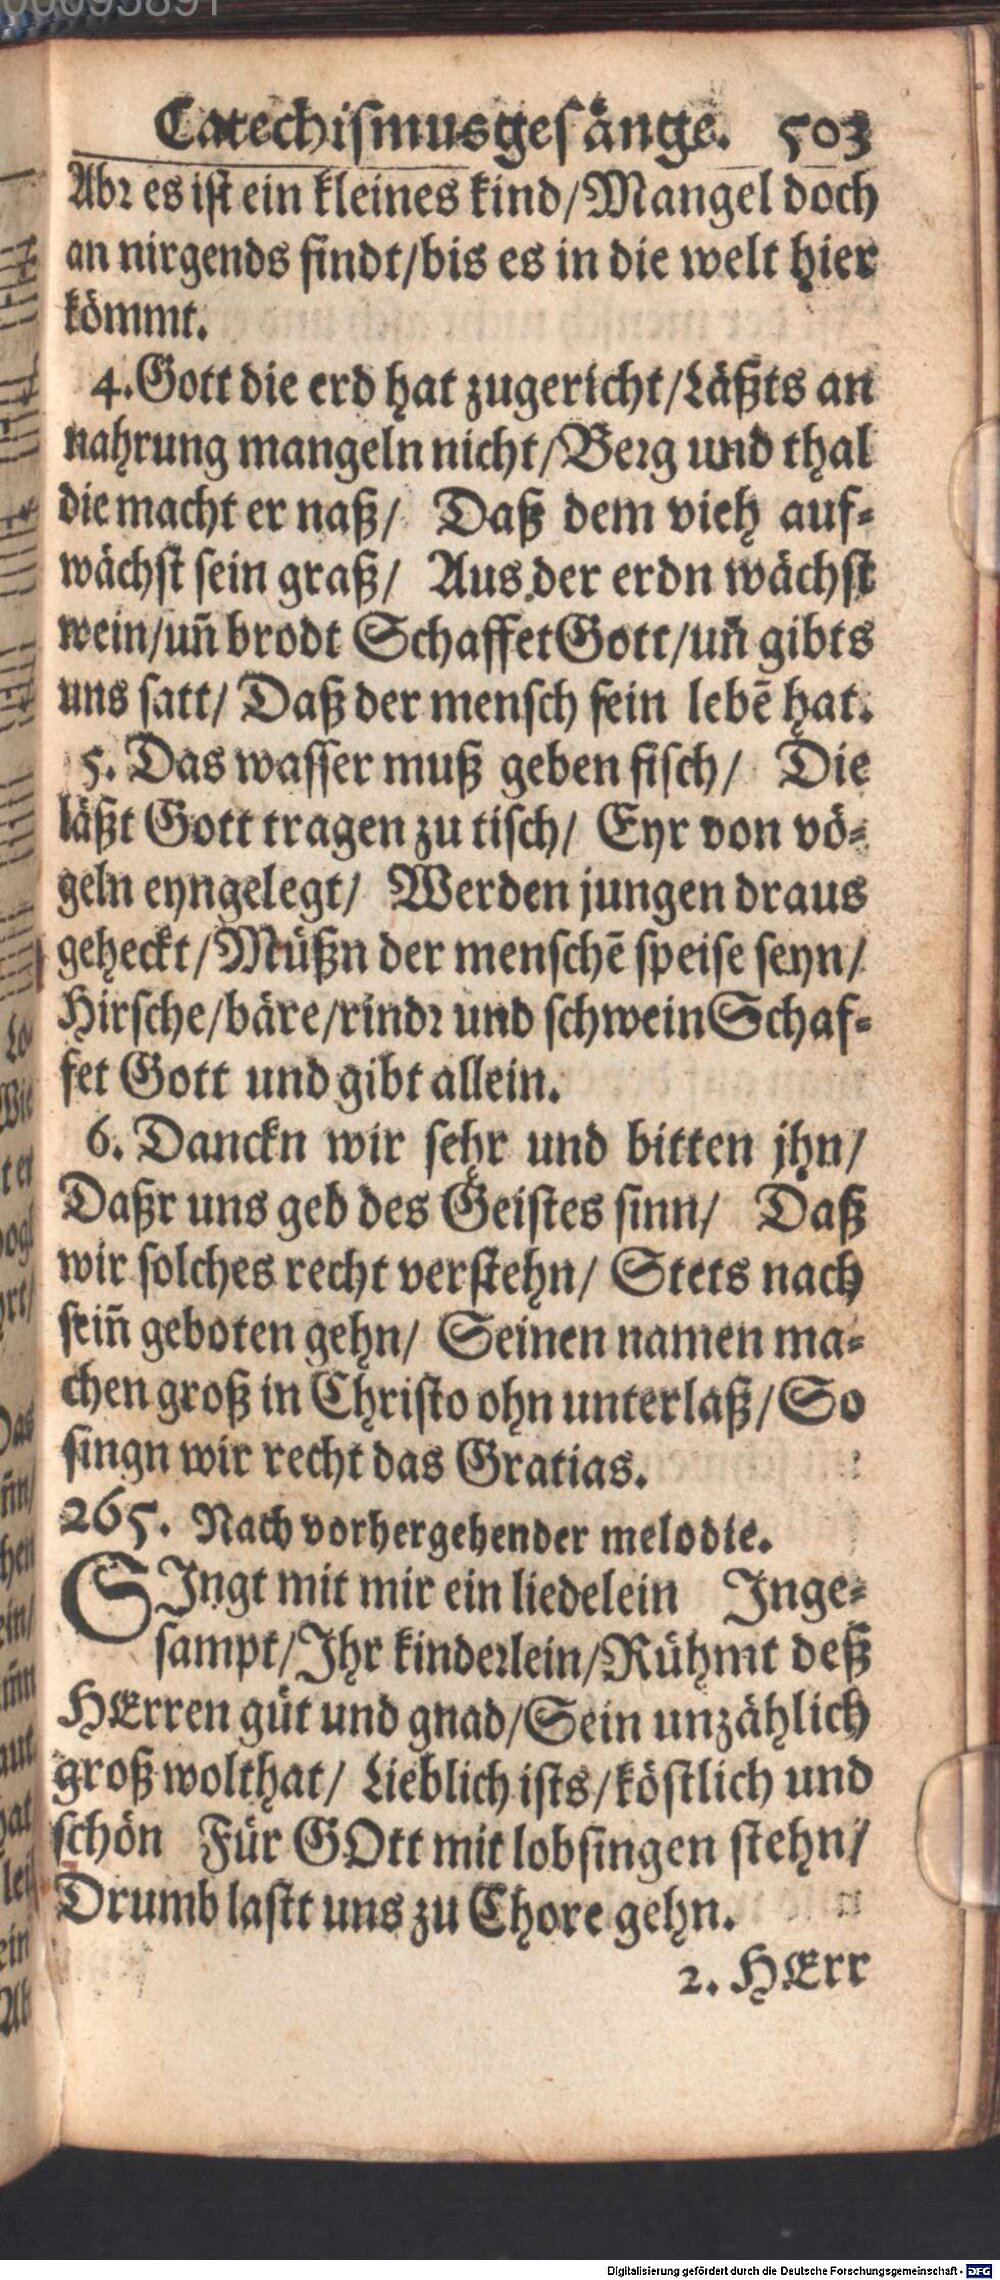 Catechismusgesänge. 503
Abr es ist ein kleines kind/Mangel doch
an nirgends findt/bis es in die welt hier
kömmt.
4. Gott die erd hat zugericht/Läßts an
nahrung mangeln nicht/Berg und thal
die macht er naß/ Daß dem vieh auf-
wächst sein graß/ Aus der erdn wächst
wein/uñ brodt Schaffet Gott/uñ gibts
uns satt/ Daß der mensch sein lebẽ hat.
5. Das wasser muß geben fisch/ Die
läßt Gott tragen zu tisch/ Eyr von vö-
geln eyngelegt/ Werden jungen draus
geheckt/Müßn der menschẽ speise seyn/
Hirsche/bäre/rindr und schwein Schaf-
fet Gott und gibt allein.
6. Danckn wir sehr und bitten jhn/
Daßr uns geb des Geistes sinn/ Daß
wir solches recht verstehn/ Stets nach
seiñ geboten gehn/ Seinen namen ma-
chen groß in Christo ohn unterlaß/So
singn wir recht das Gratias.
265. Nach vorhergehender melodie.
SIngt mit mir ein liedelein Inge-
sampt/Ihr kinderlein/Rühmt deß
HErren güt und gnad/Sein unzählich
groß wolthat/ Lieblich ists/köstlich und
schön Für GOtt mit lobsingen stehn/
Drumb lastt uns zu Chore gehn.
2. HErr
Digitalisierung gefördert durch die Deutsche Forschungsgemeinschaft - DFG